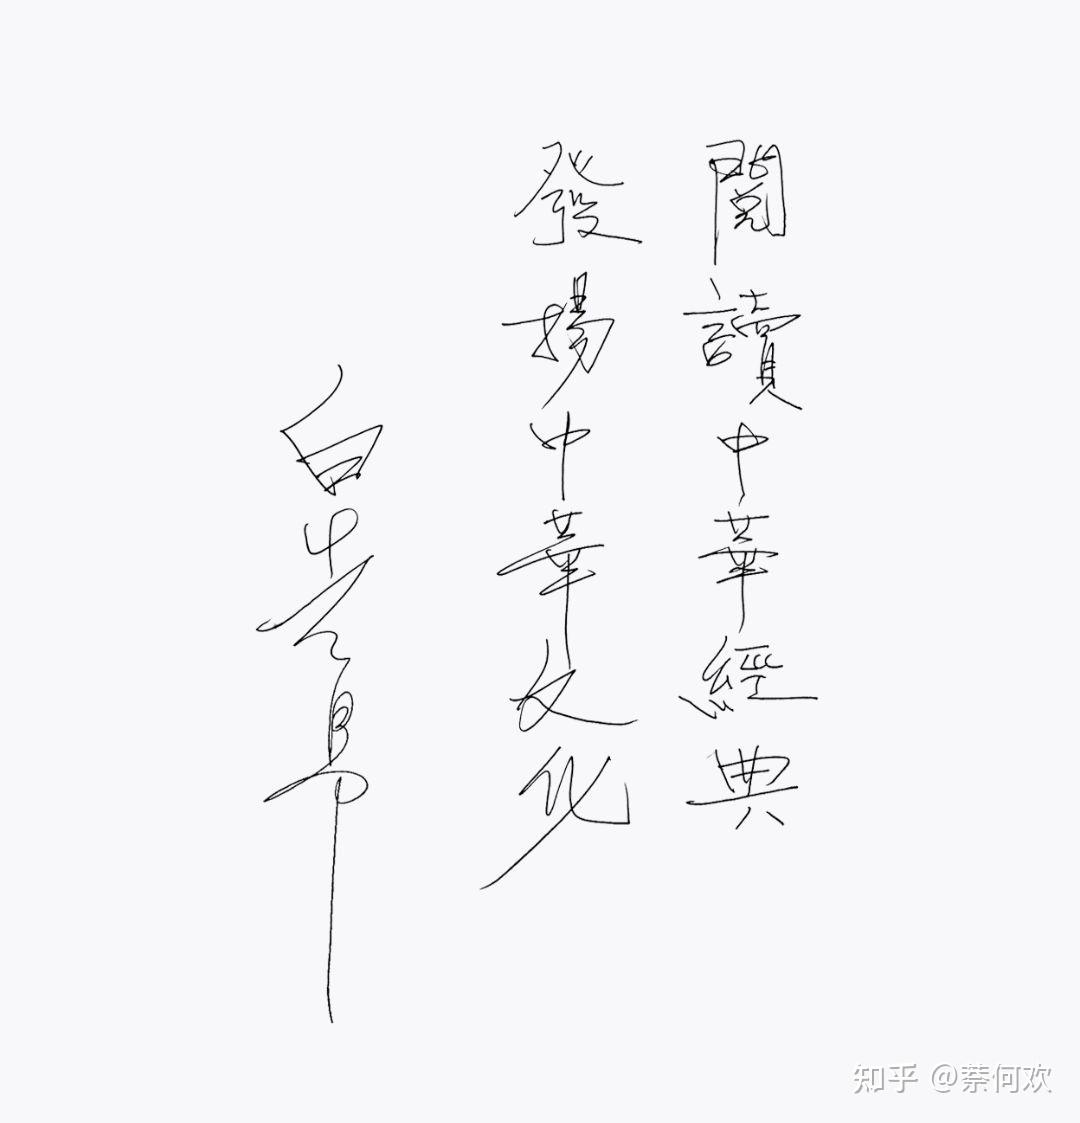 閱讀中華經典
發揚中華文化
白先勇
知乎 @蔡何欢